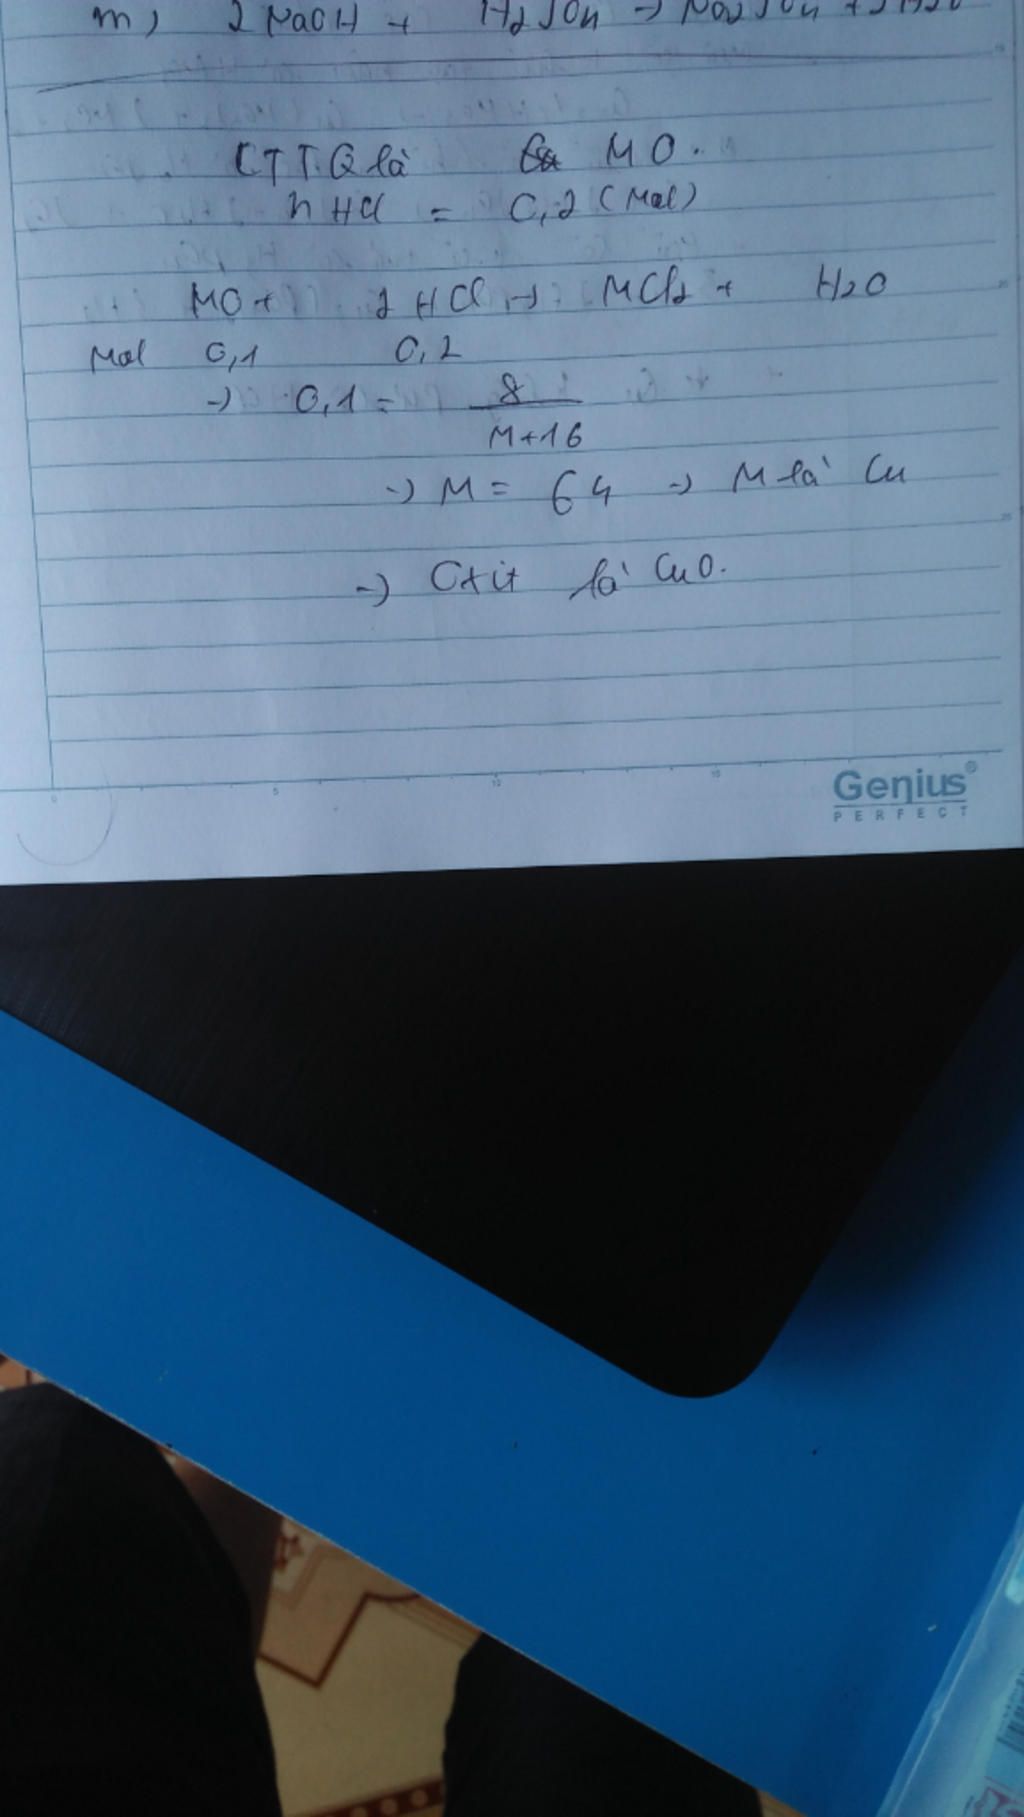 m) 2NaOH + H2SO4 → Na2SO4 + 2H2O
CTTQ là MO.
nHCl = 0,2 (Mol)
MO + 2HCl → MCl2 + H2O
Mol 0,1 0,2
→ 0,1 = 8 / M+16
→ M = 64 → M là Cu
→ Oxit là CuO.
0 5 10 15
Genius®
PERFECT